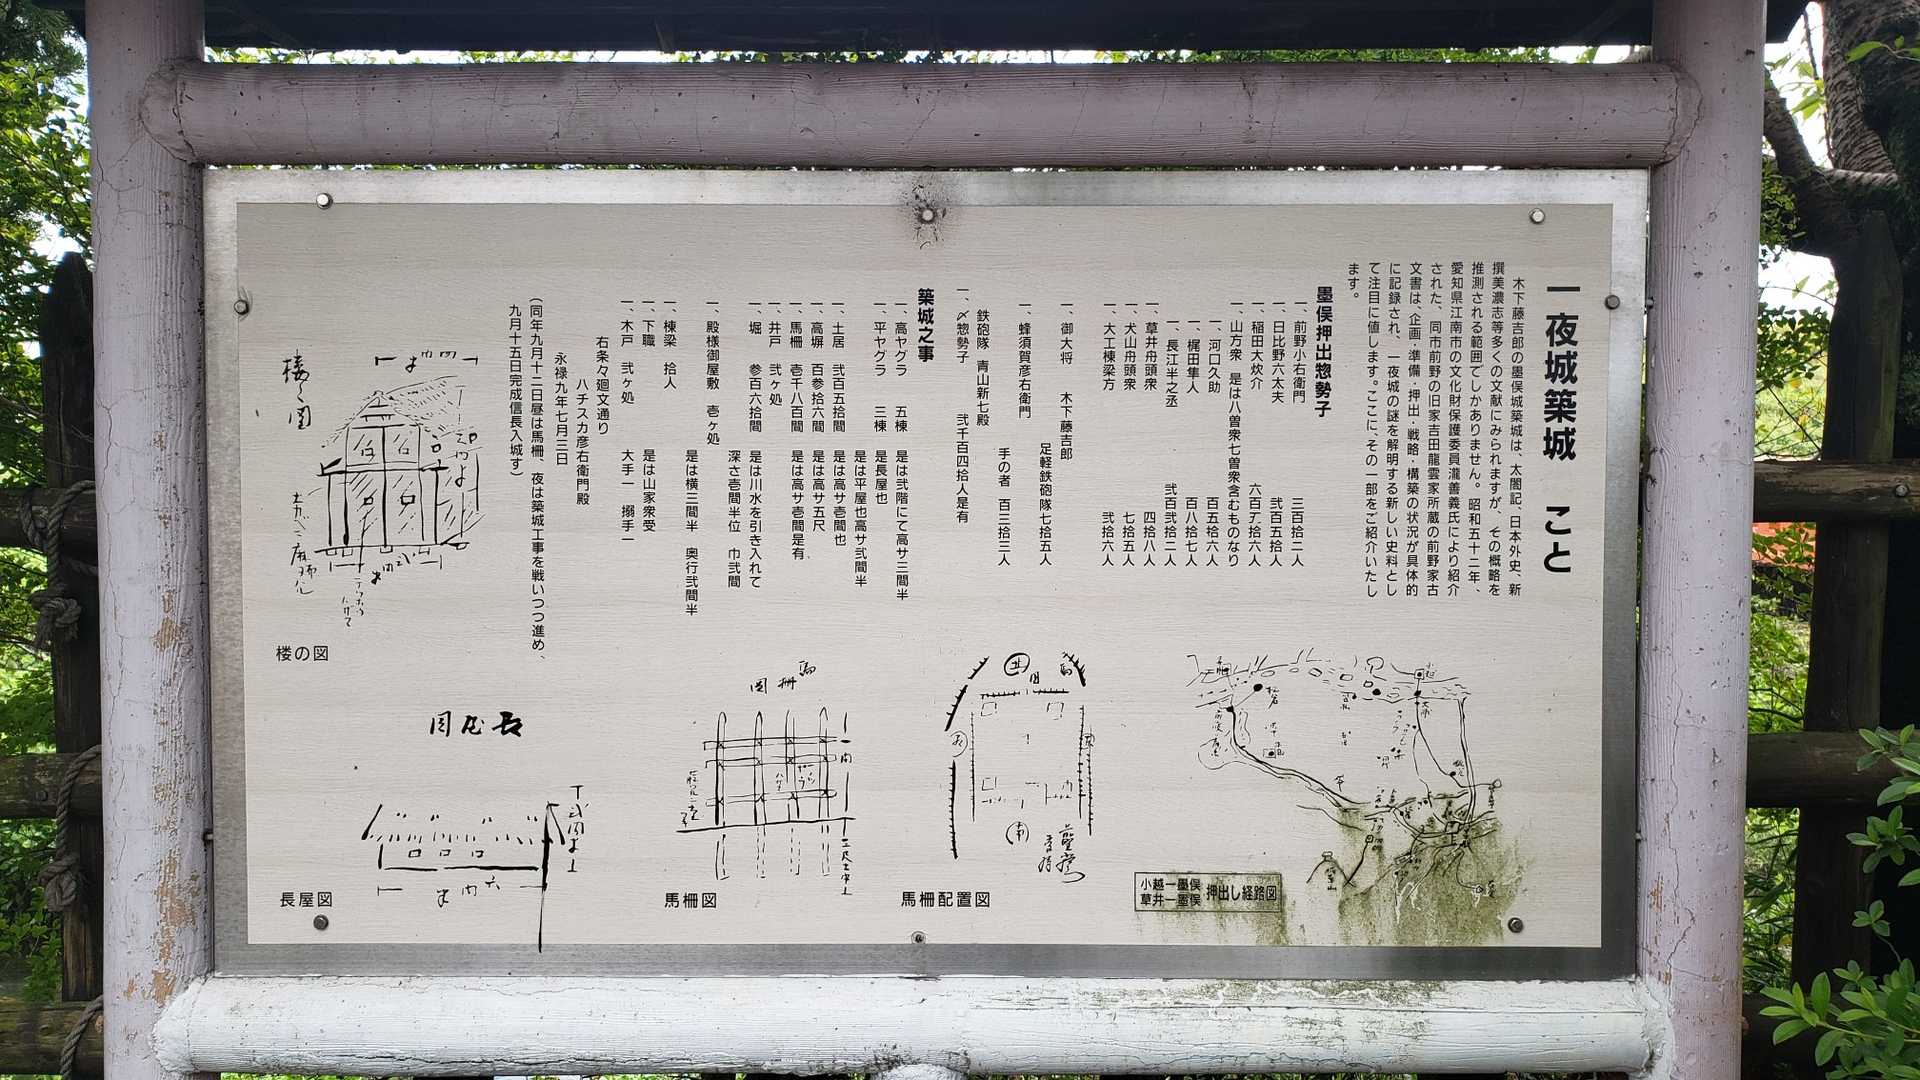 一夜城築城　こと
木下藤吉郎の墨俣城築城は、太閤記、日本外史、新
撰美濃志等多くの文献にみられますが、その概略を
推測される範囲でしかありません。昭和五十二年、
愛知県江南市の文化財保護委員瀧善義氏により紹介
された、同市前野の旧家吉田龍雲家所蔵の前野家古
文書は、企画・準備・押出・戦略・構築の状況が具体的
に記録され、一夜城の謎を解明する新しい史料とし
て注目に値します。ここに、その一部をご紹介いたし
ます。
墨俣押出惣勢子
一、前野小右衛門　三百拾二人
一、日比野六太夫　弐百五拾人
一、稲田大炊介　六百九拾六人
一、山方衆　是は八曽衆七曽衆含むものなり
一、河口久助　百五拾六人
一、梶田隼人　百八拾七人
一、長江半之丞　弐百弐拾二人
一、草井舟頭衆　四拾八人
一、犬山舟頭衆　七拾五人
一、大工棟梁方　弐拾六人
一、御大将　木下藤吉郎
足軽鉄砲隊七拾五人
一、蜂須賀彦右衛門
手の者　百三拾三人
鉄砲隊　青山新七殿
一、〆惣勢子　弐千百四拾人是有
築城之事
一、高ヤグラ　五棟　是は弐階にて高サ三間半
一、平ヤグラ　三棟　是長屋也
是は平屋也高サ弐間半
一、土居　弐百五拾間　是は高サ壱間也
一、高塀　百参拾六間　是は高サ五尺
一、馬柵　壱千八百間　是は高サ壱間是有
一、井戸　弐ヶ処
一、堀　参百六拾間　是は川水を引き入れて
深さ壱間半位　巾弐間
一、殿様御屋敷　壱ヶ処
是は横三間半　奥行弐間半
一、棟梁　拾人
一、下職　是は山家衆受
一、木戸　弐ヶ処　大手一　搦手一
右条々廻文通り
ハチスカ彦右衛門殿
永禄九年七月三日
(同年九月十二日昼は馬柵、夜は築城工事を戦いつつ進め、
九月十五日完成信長入城す)
小越ー墨俣
草井ー墨俣
押出し経路図
馬柵配置図
馬柵図
馬柵図
楼之図
楼の図
長屋図
長屋図